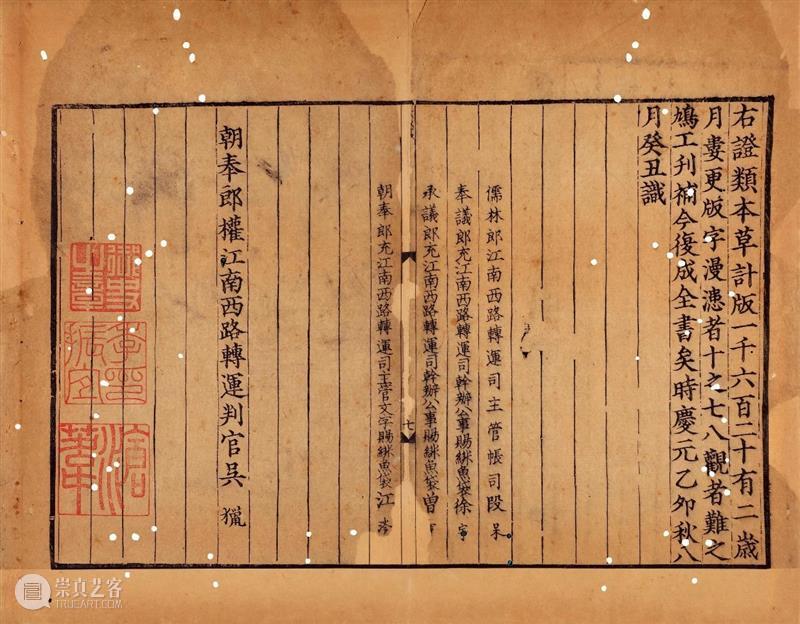 右證類本草計版一千六百二十有二歲
月婁更版字漫漶者十之七八觀者難之
鳩工刋補今復成全書矣時慶元乙卯秋八
月癸丑識
儒林郎江南西路轉運司主管帳司段 杲
奉議郎充江南西路轉運司幹辦公事賜緋魚袋徐 宇
承議郎充江南西路轉運司幹辦公事賜緋魚袋曾
七
朝奉郎充江南西路轉運司主管文字賜緋魚袋江
朝奉郎權江南西路轉運判官吳 獵
御史之章
季振宜印
滄葦
崇真艺客
TRUEART.COM